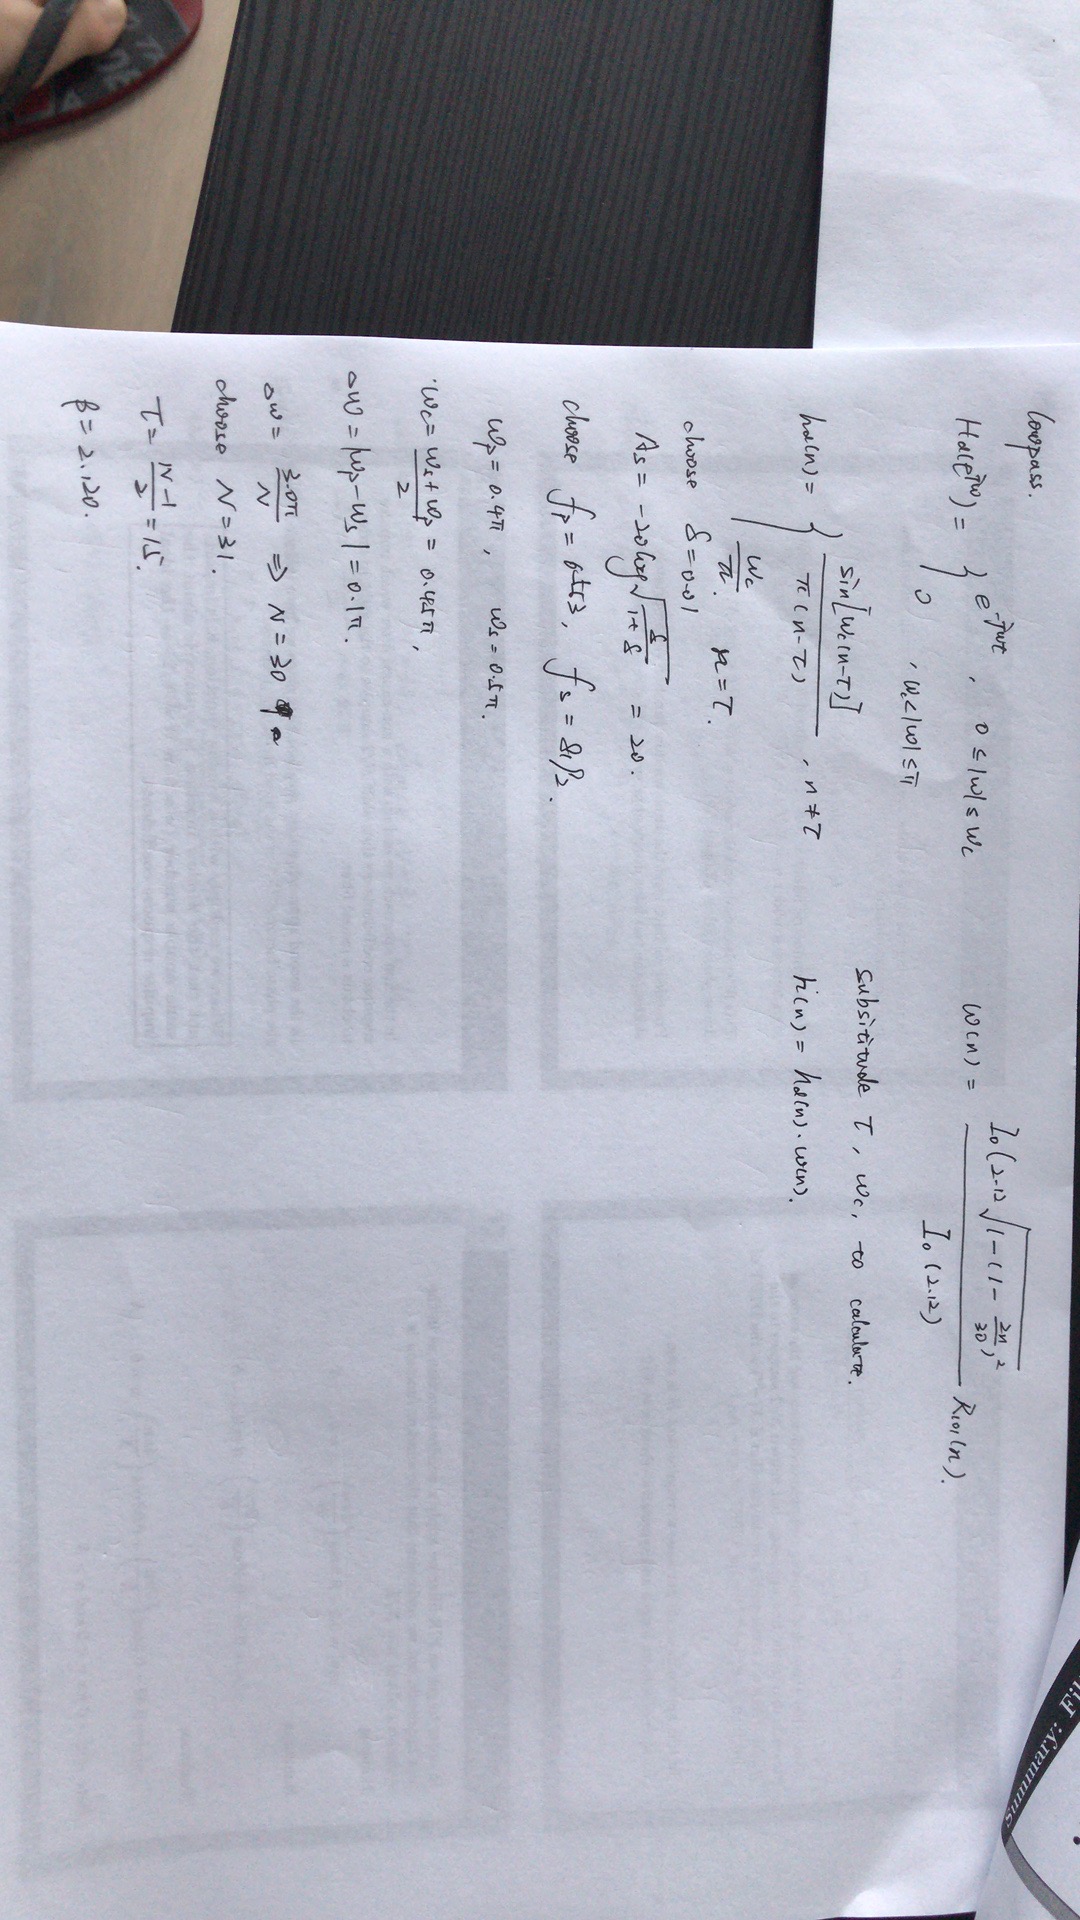 lowpass.
Hd(e^{jw}) = { e^{-jwτ} , 0 ≤ |w| ≤ wc
0 , wc < |w| ≤ π
hd(n) = { sin[wc(n-τ)] / π(n-τ) , n ≠ τ
wc / π . n = τ.
choose δ = 0.01
As = -20 log √(δ / 1+δ) = 20.
choose fp = , fs =
wp = 0.4π , ws = 0.5π.
wc = (ws + wp) / 2 = 0.45π,
△w = |wp - ws| = 0.1π.
△w = 3.0π / N ⇒ N = 30
choose N = 31.
τ = (N-1) / 2 = 15.
β = 2.120.
w(n) = I₀(2.12 √(1-(1- 2n/30)² / I₀(2.12) R₁₀₁(n).
subsititude τ, wc, to calculate.
h(n) = hd(n) · w(n).
Summary: Fi